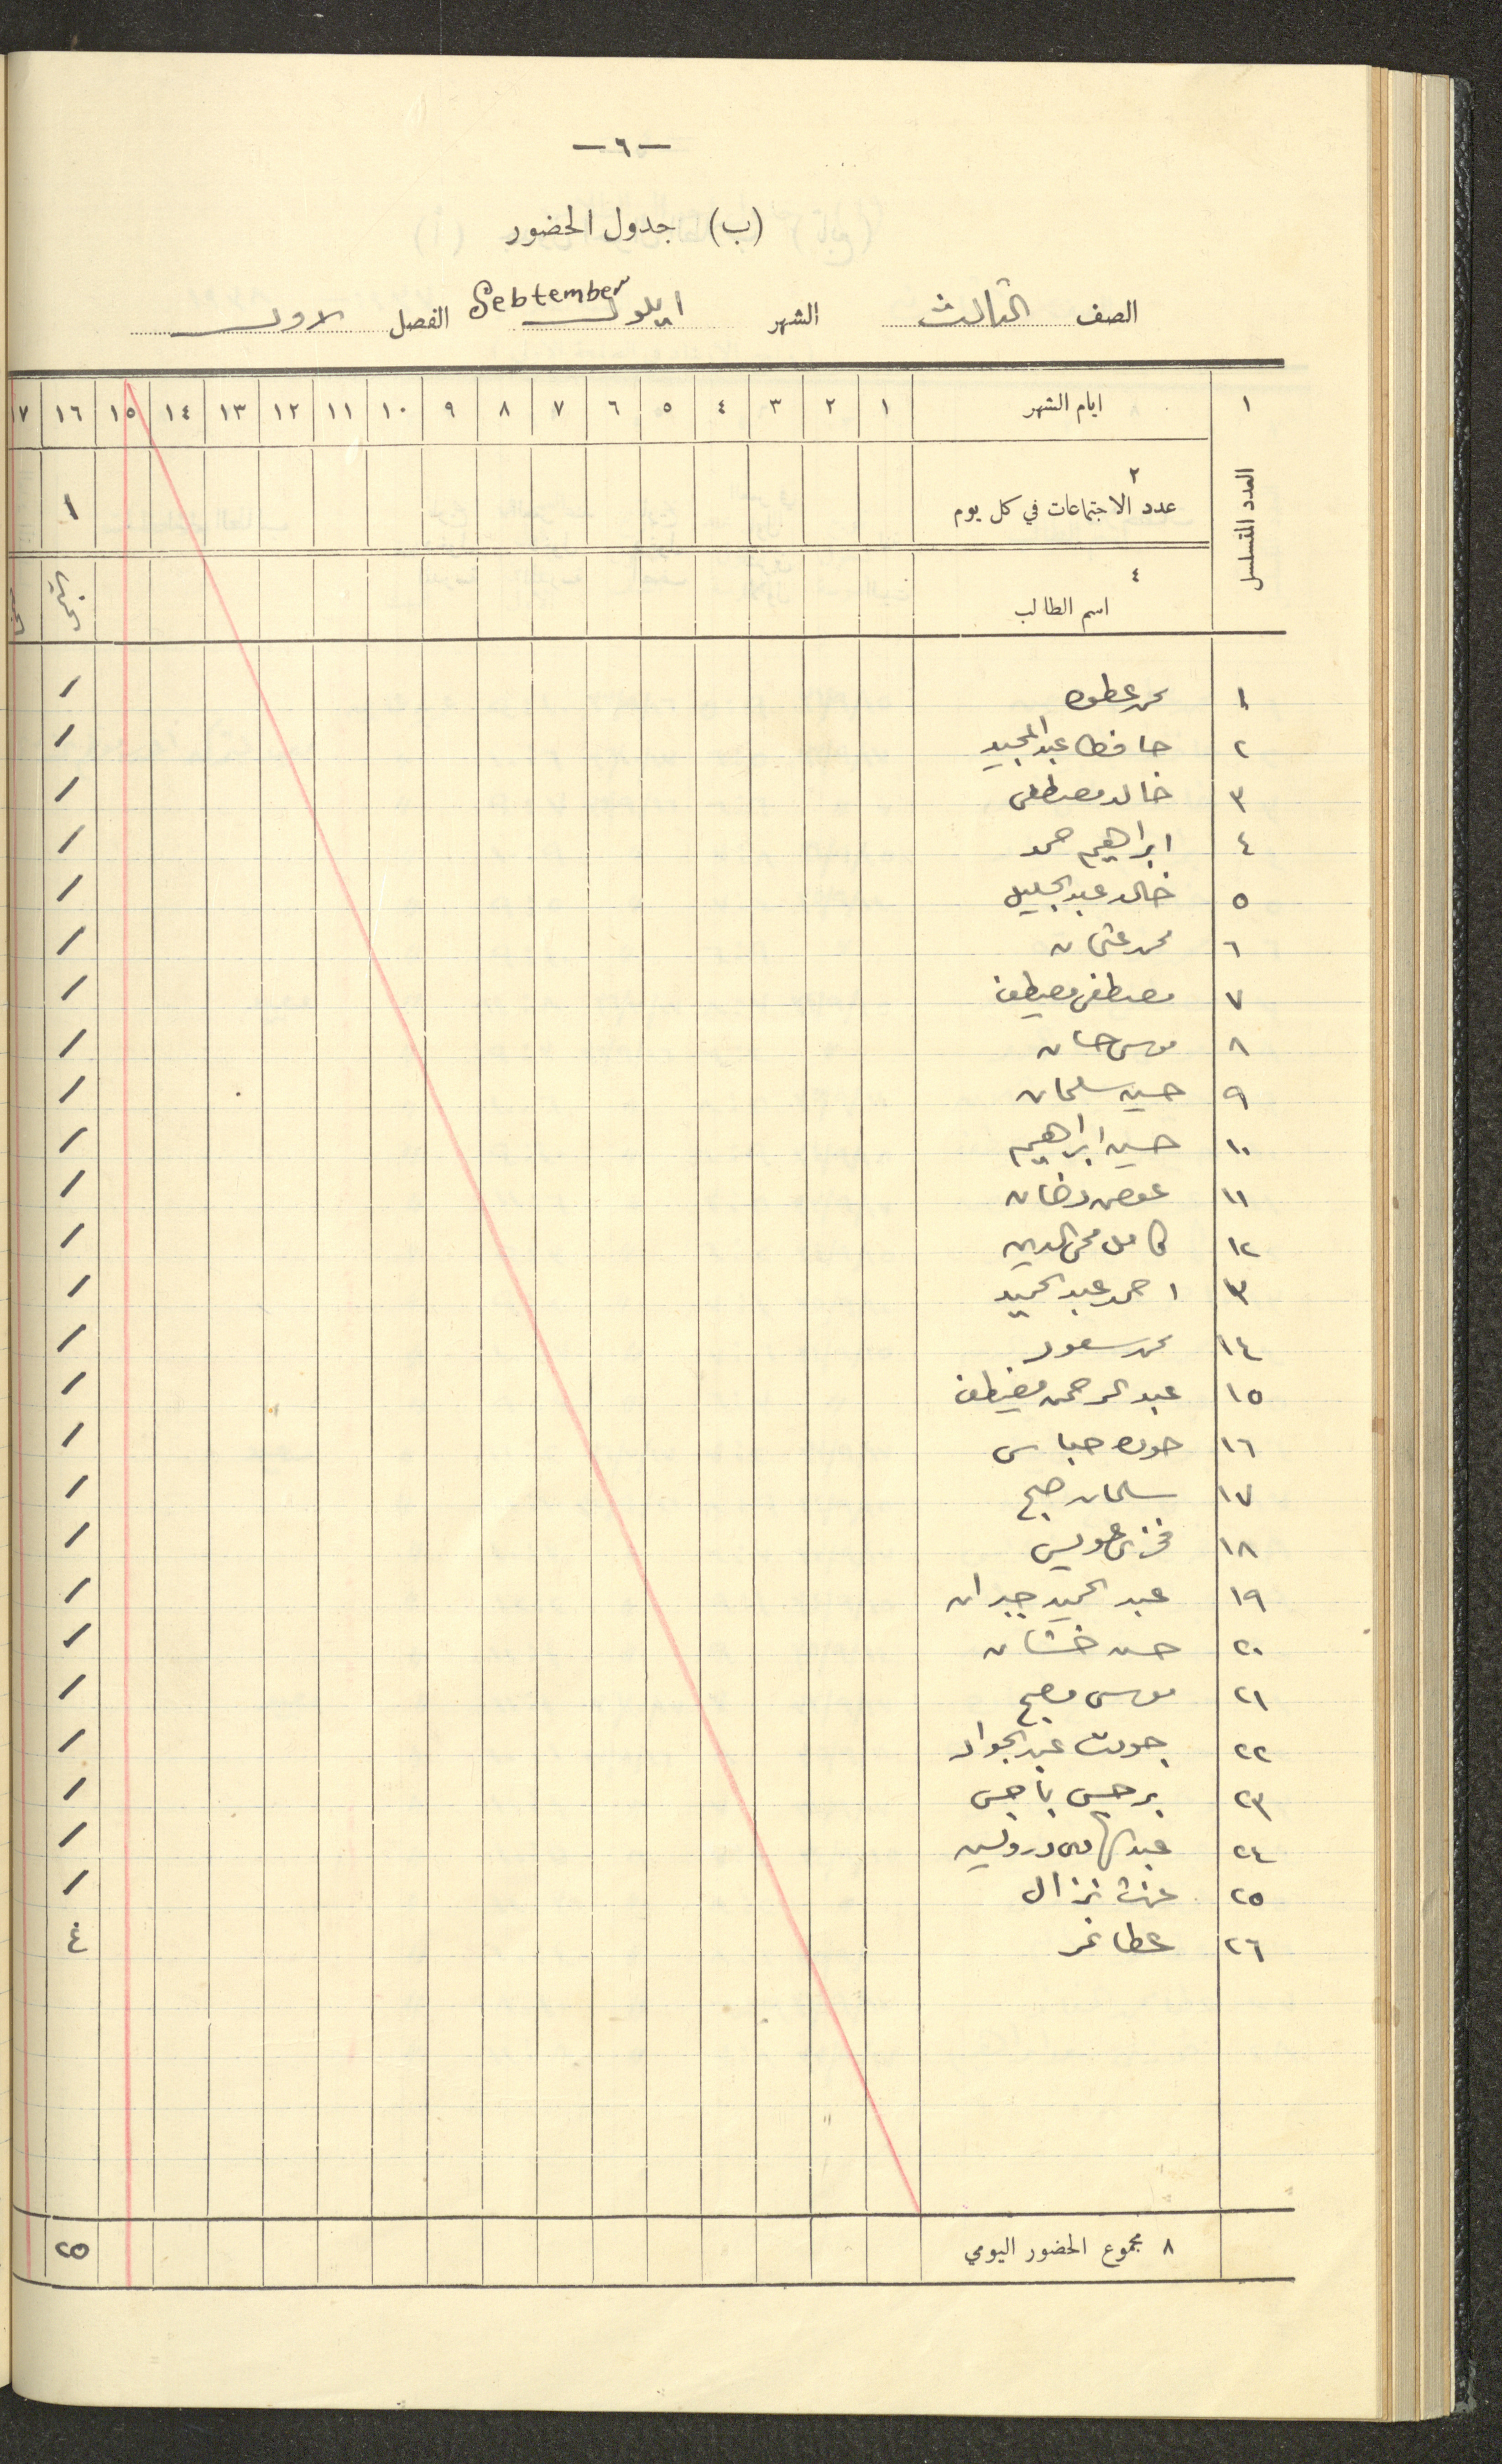 — ٦ —
(ب) جدول الحضور
الصف الثالث الشهر ايلول September الفصل الاول
١ ايام الشهر ١ ٢ ٣ ٤ ٥ ٦ ٧ ٨ ٩ ١٠ ١١ ١٢ ١٣ ١٤ ١٥ ١٦ ١٧
العدد المتسلسل
٢
عدد الاجتماعات في كل يوم ١
٤
اسم الطالب
١ محمد عطوه /
٢ حافظ عبد المجيد /
٣ خالد مصطفى /
٤ ابراهيم حمد /
٥ خالد عبد الجليل /
٦ محمد عثمان /
٧ مصطفى مصطفى /
٨ موسى حسان /
٩ حسين سلمان /
١٠ حسين ابراهيم /
١١ عوض رمضان /
١٢ كامل محي الدين /
١٣ احمد عبد الحميد /
١٤ محمد سعود /
١٥ عبد الرحمن مصطفى /
١٦ عباس /
١٧ سلمان صبح /
١٨ فخري عويس /
١٩ عبد الحميد جبران /
٢٠ حسن خشان /
٢١ موسى مصبح /
٢٢ جودت عبد الجواد /
٢٣ برجس باجس /
٢٤ عبد الهادي درويش /
٢٥ عزت نزال /
٢٦ عطا نمر غ
٨ مجموع الحضور اليومي ٢٥